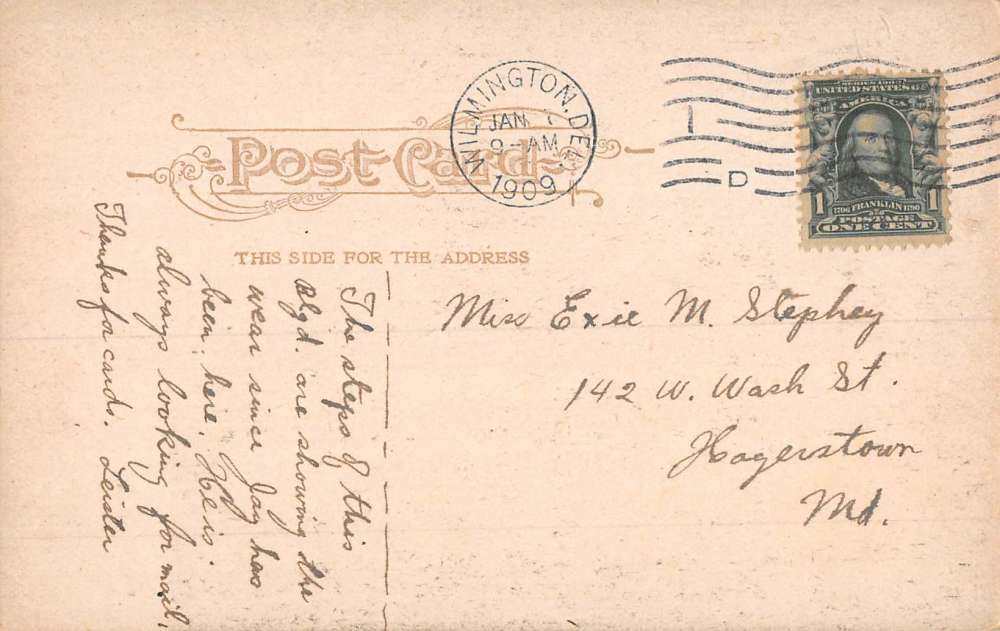 WILMINGTON, DEL.
JAN
9-AM
1909
D
SERIES 1902
UNITED STATES OF
AMERICA
1706 FRANKLIN 1790
1 POSTAGE 1
ONE CENT
Post Card
THIS SIDE FOR THE ADDRESS
Miss Exie M. Stephey
142 W. Wash St.
Hagerstown
Md.
The steps of this
Blgd. are showing the
wear since Jay has
been here. He is
always looking for mail.
Thanks for cards. Leister